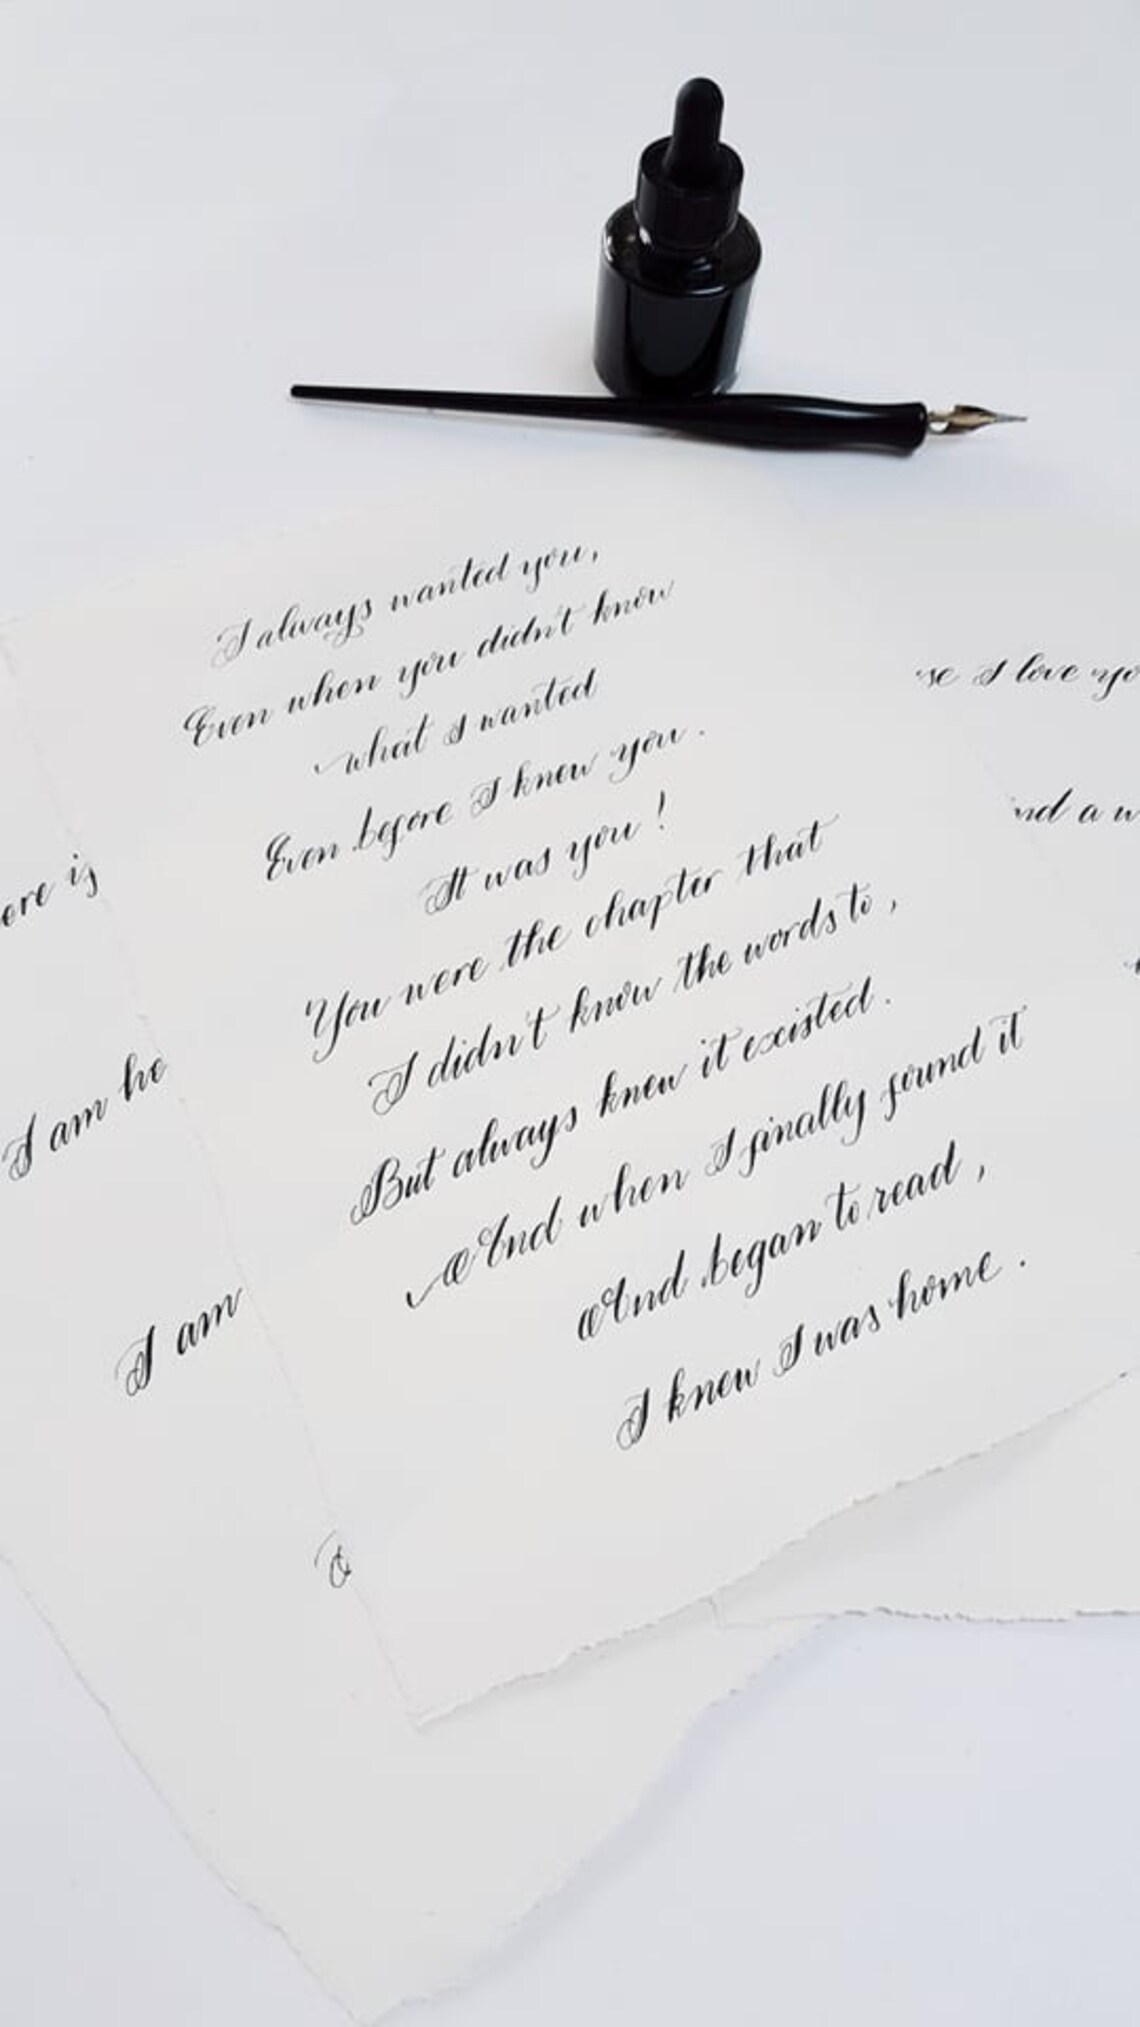 I always wanted you,
Even when you didn't know
what I wanted
Even before I knew you.
It was you!
You were the chapter that
I didn't know the words to,
But always knew it existed.
And when I finally found it
And began to read,
I knew I was home.
ere is
I am he
I am
se I love yo
nd a w